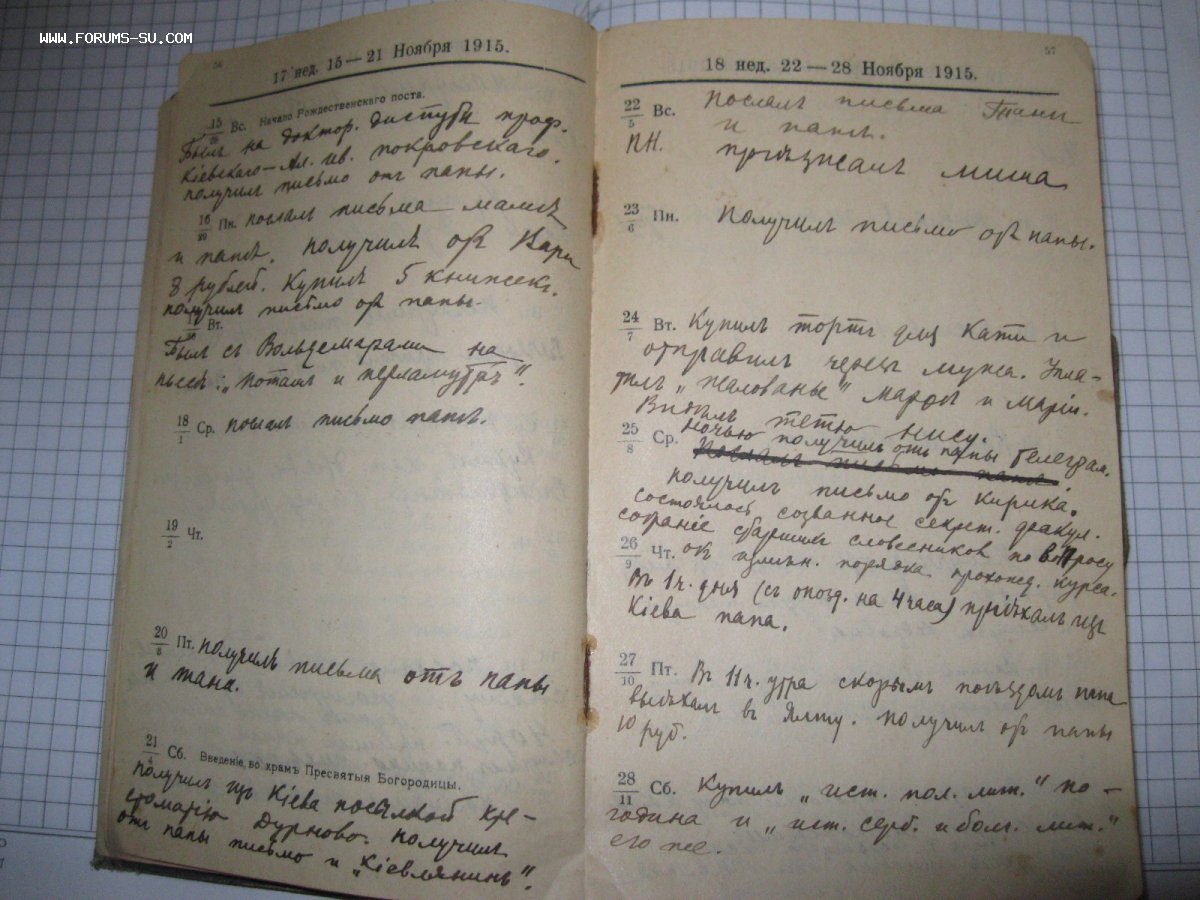 WWW.FORUMS-SU.COM
56
17 нед. 15 — 21 Ноября 1915.
15/28 Вс. Начало Рождественскаго поста.
Былъ на доктор. диспутѣ проф.
Кіевскаго — Ал. Ив. Покровскаго.
получилъ письмо отъ папы.
16/29 Пн. послалъ письма мамѣ
и папѣ. получилъ отъ Вари
8 рублей. Купилъ 5 книжекъ.
получилъ письмо отъ папы.
Вт.
Былъ съ Вольдемарами на
пьесѣ: „Поташъ и перламутръ".
18/1 Ср. послалъ письмо папѣ.
19/2 Чт.
20/3 Пт. получилъ письма отъ папы
и жана.
21/4 Сб. Введеніе во храмъ Пресвятыя Богородицы.
получилъ изъ Кіева посылкой хре-
стоматію Дурново. получилъ
отъ папы письмо и „Кіевлянинъ".
57
18 нед. 22 — 28 Ноября 1915.
22/5 Вс. Послалъ письма Тани
и папѣ.
ПН. пріѣзжалъ миша
23/6 Пн. Получилъ письмо отъ папы.
24/7 Вт. Купилъ тортъ для Кати и
отправилъ черезъ мужа. Упла-
тилъ „жалованы" Марфѣ и Маріи.
Видѣлъ тетю Нису.
ночью получилъ отъ папы телеграм.
25/8 Ср. Послалъ письмо папѣ.
получилъ письмо отъ Кирика.
состоялось созванное секрет. факул.
собраніе старшихъ словесниковъ по вопросу
26/9 Чт. объ измѣн. порядка прохожд. курса.
Въ 1 ч. дня (съ опозд. на 4 часа) пріѣхалъ изъ
Кіева папа.
27/10 Пт. Въ 11 ч. утра скорымъ поѣздомъ папа
выѣхалъ въ Ялту. получилъ отъ папы
10 руб.
28/11 Сб. Купилъ „ист. пол. лит." по-
година и „ист. серб. и болг. лит."
его же.